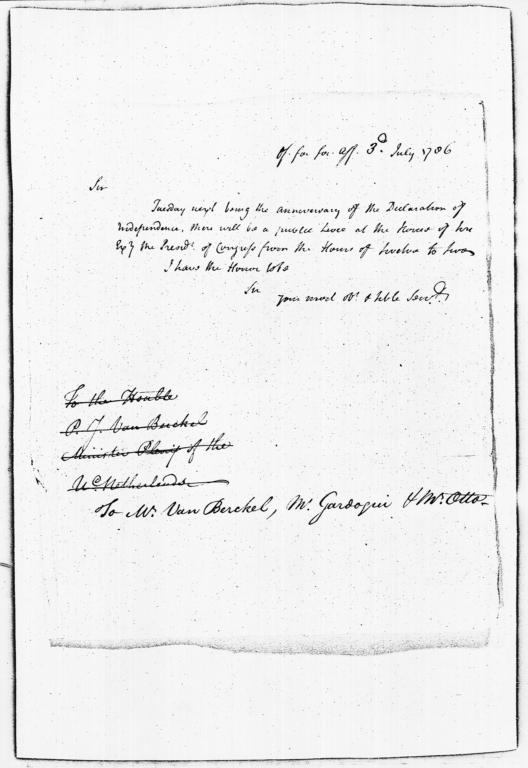 Of. for for. aff. 3d. July 1786
Sir
Tuesday next being the anniversary of the Declaration of
Independence, there will be a public Levee at the House of his
Exy the Presidt. of Congress from the Hours of twelve to two
I have the Honor to be
Sir
your most Obt. & hble Servt.
To the Honble
P. J. Van Berckel
Minister Plenip of the
Ud. Netherlands
To Mr. Van Berckel, Mr. Gardoqui & Mr. Otto-